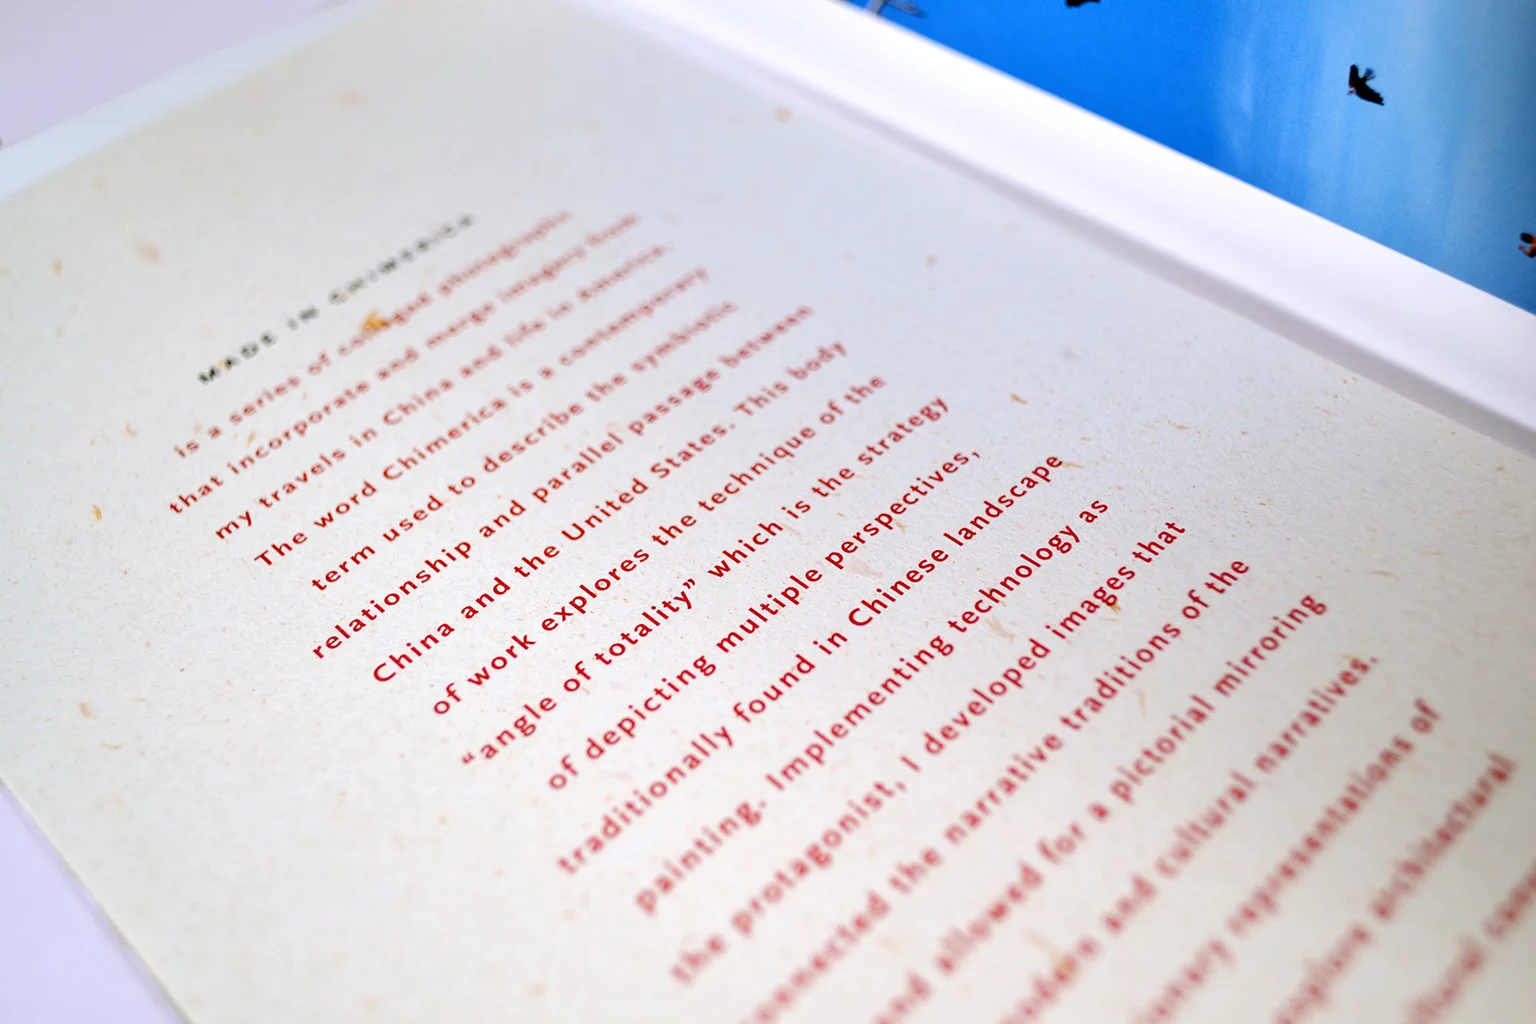 MADE IN CHIMERICA
is a series of collaged photographs
that incorporate and merge imagery from
my travels in China and life in America.
The word Chimerica is a contemporary
term used to describe the symbiotic
relationship and parallel passage between
China and the United States. This body
of work explores the technique of the
“angle of totality” which is the strategy
of depicting multiple perspectives,
traditionally found in Chinese landscape
painting. Implementing technology as
the protagonist, I developed images that
connected the narrative traditions of the
and allowed for a pictorial mirroring
modern and cultural narratives.
representations of
explore architectural